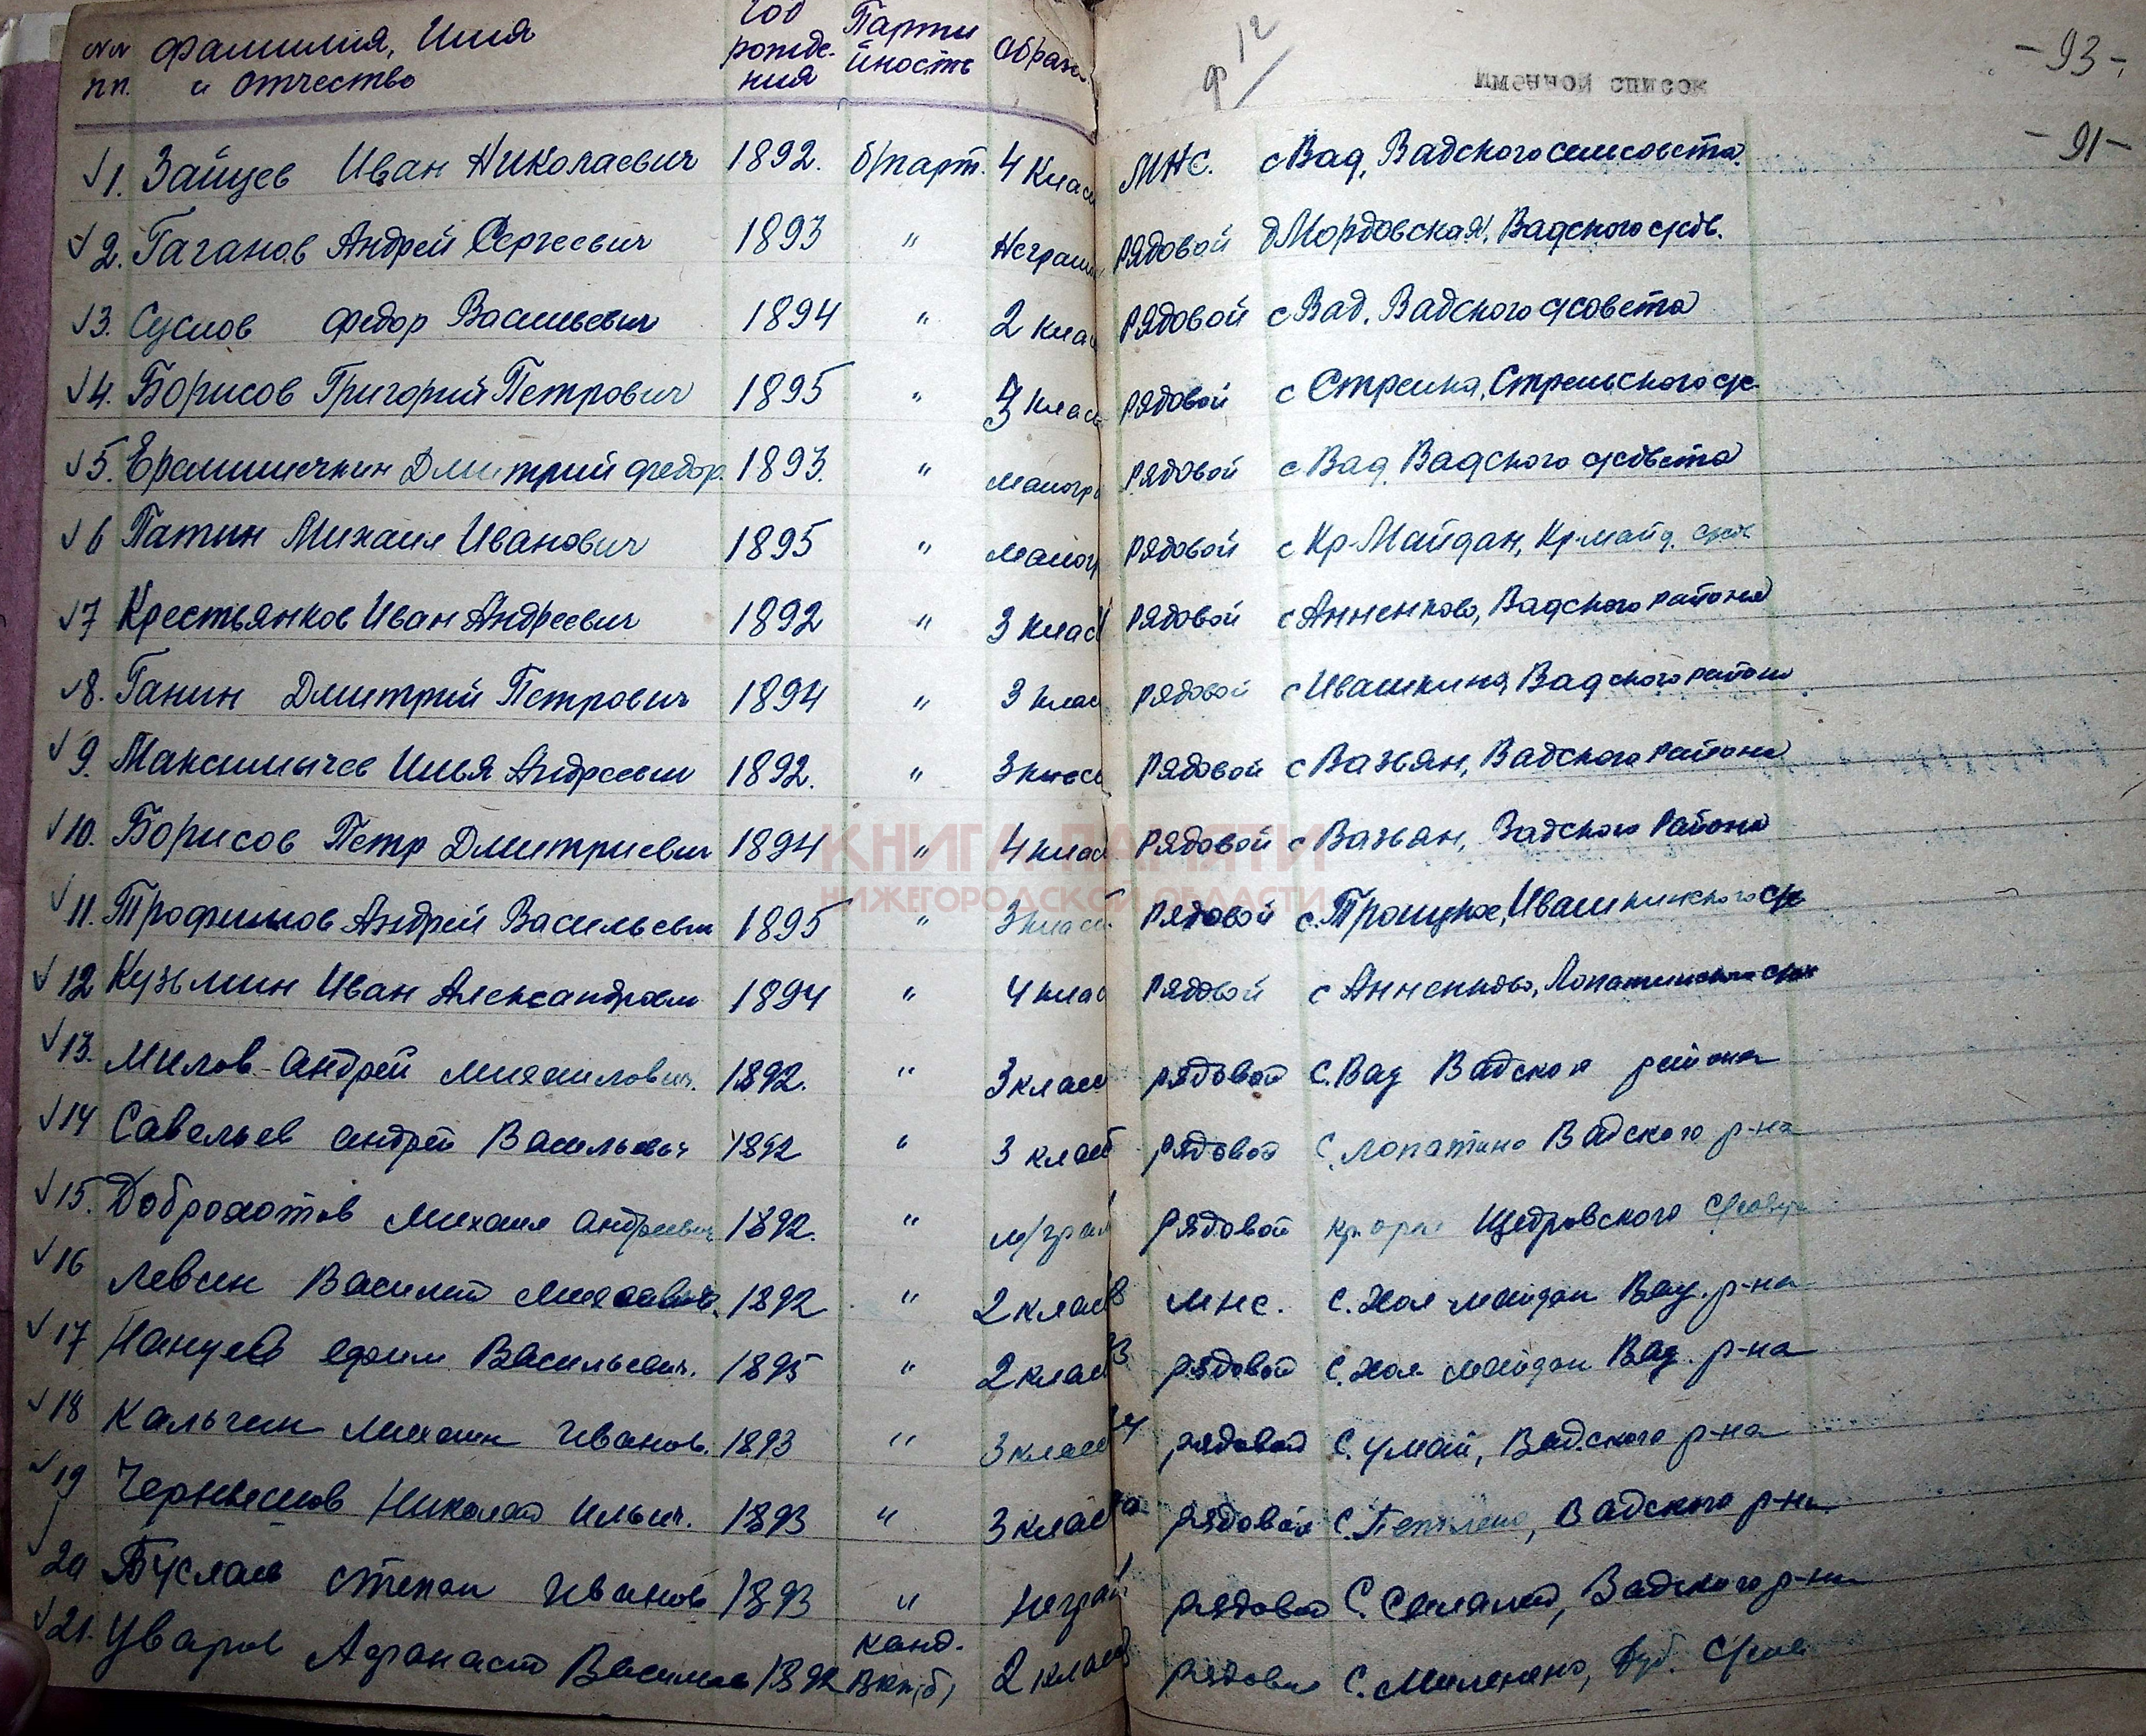 №№ пп. Фамилия, Имя и отчество Год рожде-ния Парти йность Образ
Именной список
-93-
-91-
1. Зайцев Иван Николаевич 1892. б/парт. 4 клас МНС. с Вад, Вадского сельсовета.
2. Гаганов Андрей Сергеевич 1893 " Неграм рядовой д Мордовская, Вадского с/сов.
3. Суслов Федор Васильевич 1894 " 2 клас рядовой с Вад, Вадского с/совета
4. Борисов Григорий Петрович 1895 " 3 клас рядовой с Стрелка, Стрельского с/с
5. Ерамишечкин Дмитрий Федор. 1893. " малогр рядовой с Вад Вадского с/совета
6 Патин Михаил Иванович 1895 " малогр рядовой с Кр-Майдан, Кр-майд. с/сов
7 Крестьянков Иван Андреевич 1892 " 3 клас рядовой с Анненково, Вадского района
8. Ганин Дмитрий Петрович 1894 " 3 клас рядовой с Ивашкина, Вадского района
9. Максимычев Илья Андреевич 1892. " 3 класс рядовой с Вазьян, Вадского района
10. Борисов Петр Дмитриевич 1894 " 4 клас рядовой с Вазьян, Вадского района
КНИГА ПАМЯТИ
НИЖЕГОРОДСКОЙ ОБЛАСТИ
11. Трофимов Андрей Васильевич 1895 " 3 клас рядовой с. Троицкое, Ивашкинского с/с
12 Кузьмин Иван Александрович 1894 " 4 клас рядовой с Анненково, Лопатинского с/сов
13. Милов Андрей Михаилович. 1892. " 3 клас рядовой С. Вад Вадского района
14 Савельев Андрей Васильевич 1892 " 3 клас рядовой С. Лопатино Вадского р-на
15. Доброхотов Михаил Андреевич 1892. " м/грам рядовой Кр. орел Щедровского с/совета
16 Левин Василий 1892 " 2 клас мнс. С. Хол-майдан Вад. р-на
17 Нануев Ефим Васильевич. 1895 " 2 клас рядовой С. Хол-майдан Вад. р-на
18 Кальгин Михаил Иванов. 1893 " 3 клас рядовой С. Умай, Вадского р-на
19 Чернышов Николай Ильич. 1893 " 3 клас рядовой С. Петлино, Вадского р-на
20 Буслаев Степан Иванов 1893 " Неграм рядовой С. Салалей, Вадского р-на
21. Уваров Афанасий Василье 1892 канд. ВКП(б) 2 клас рядовой С. Меленино, Дуб. с/сов